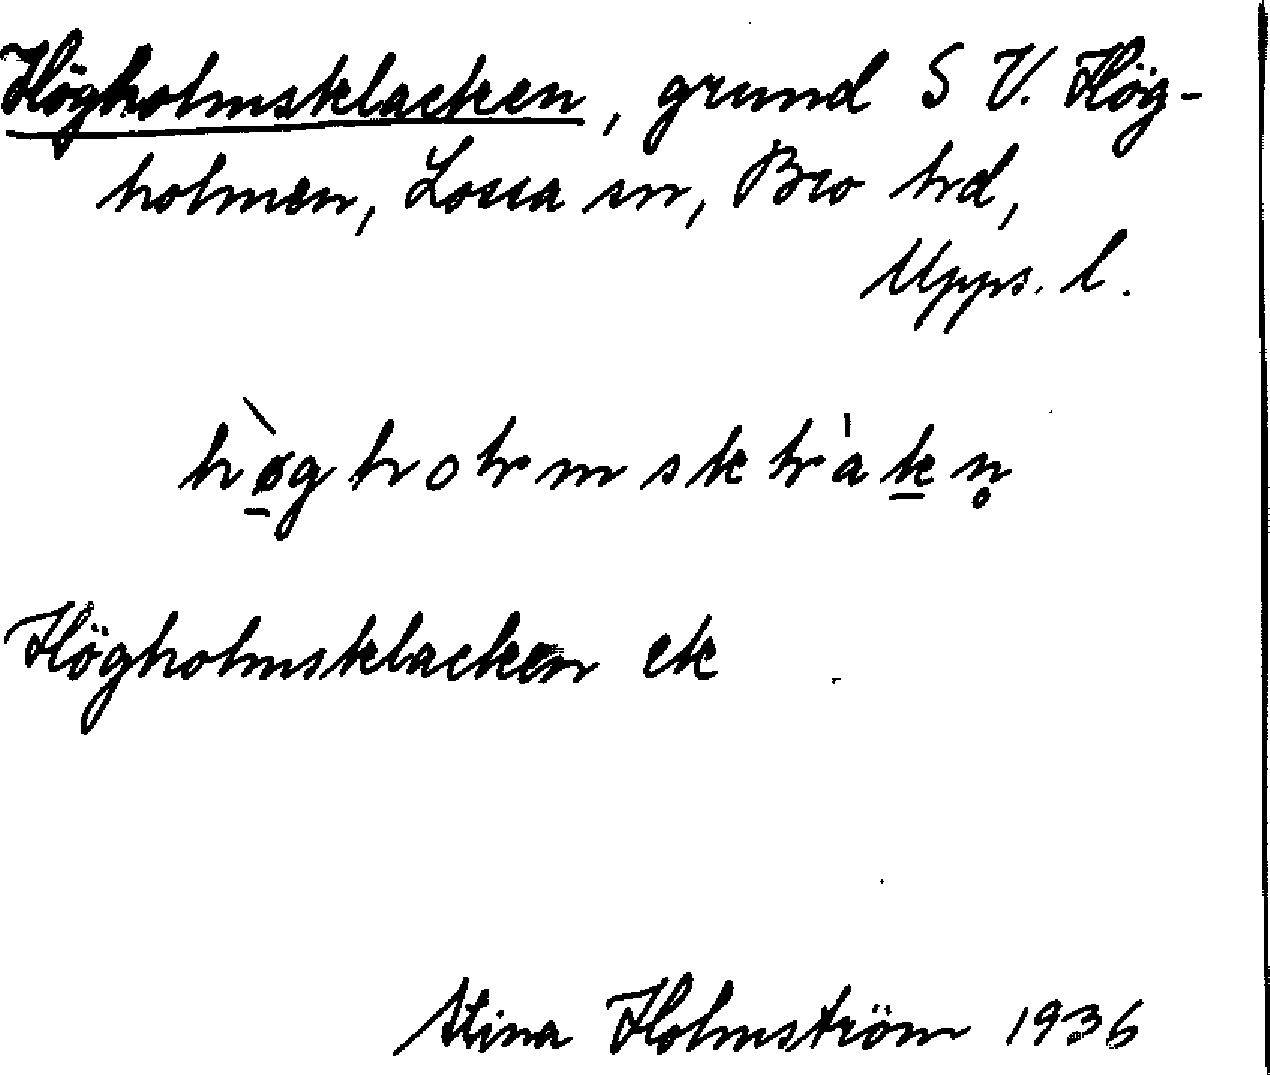 Högholmsklacken, grund S V. Hög-
holmen, Lossa sn, Bro hd,
Upps. l.
hø̱̀gholmskl'ak̲n̥
Högholmsklacken ek
Stina Holmström 1936